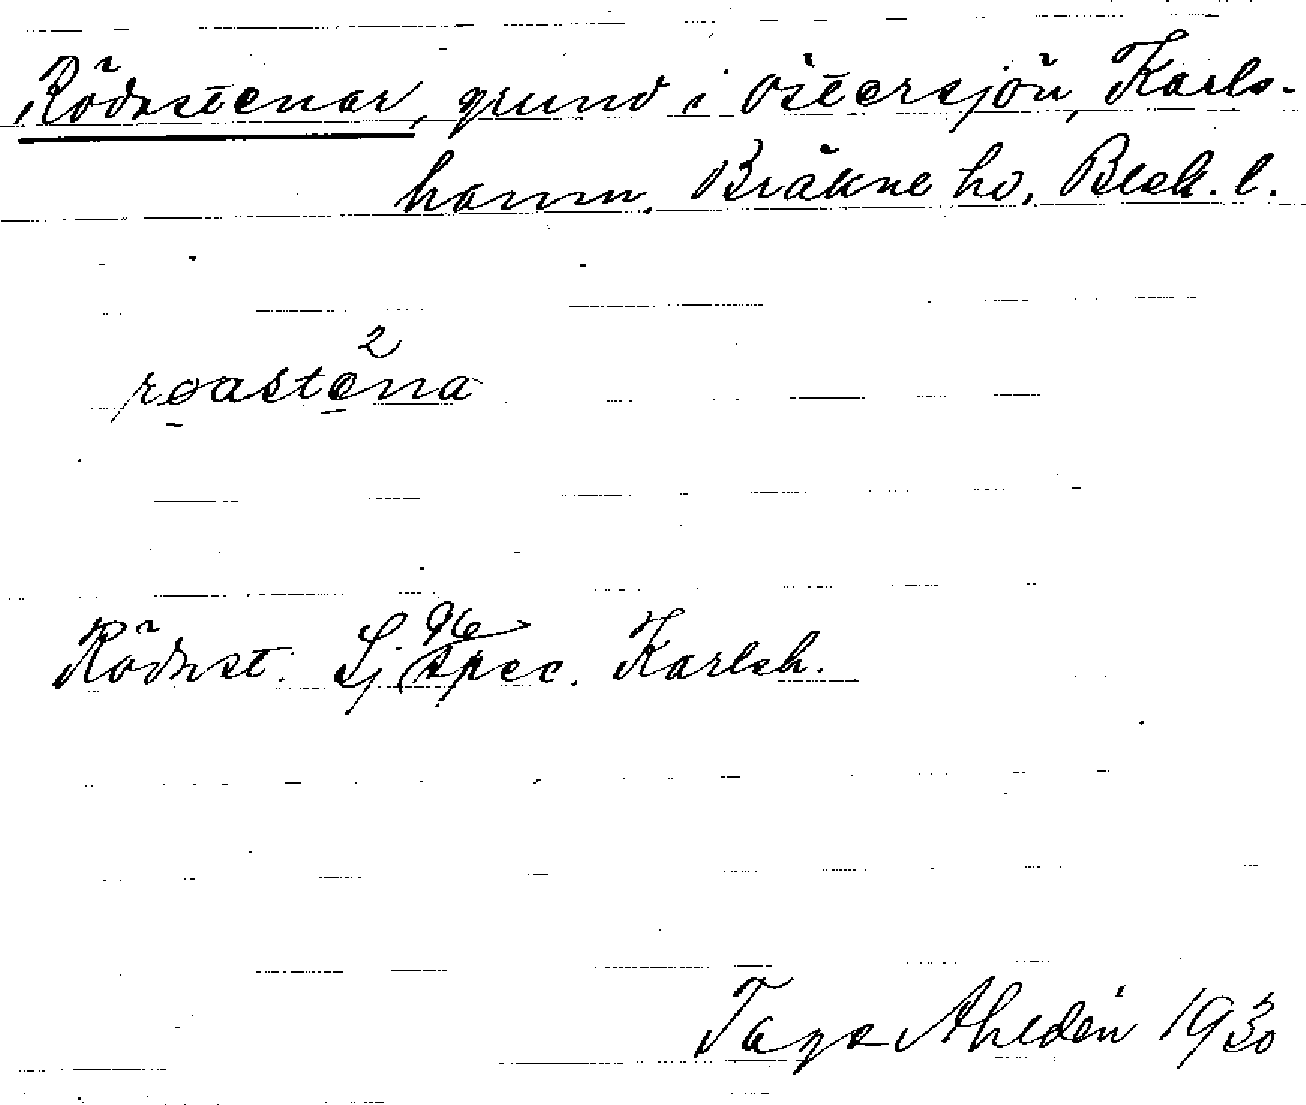 Rödastenar, grund i Östersjön, Karls-
hamn. Bräkne hd, Blek. l.
2
roastena
Rödast. Sj spec. 96 Karlsh.
Tage Ahldén 1930